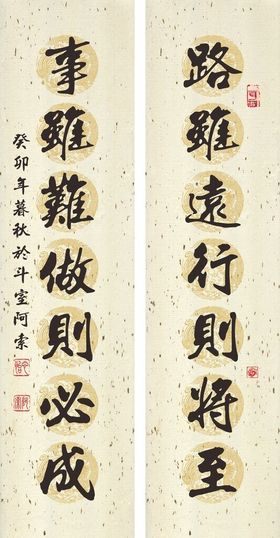 路雖遠行則將至
事雖難做則必成
癸卯年暮秋於斗室阿索